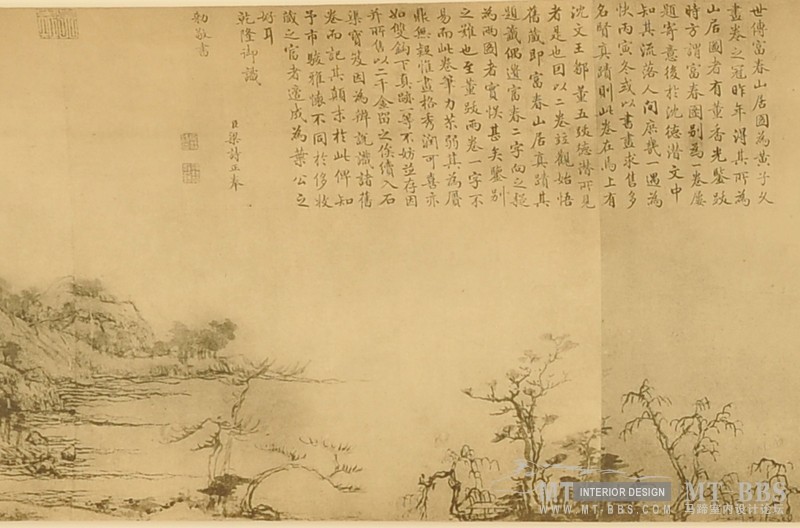 世傳富春山居圖為黃子久
畫卷之冠昨年得其所為
山居圖者有董香光鑒跋
時方謂富春圖別為一卷屢
題寄意後於沈德潛文中
知其流落人間庶幾一遇為
快丙寅冬或以書畫求售多
名賢真蹟則此卷在焉上有
沈文王鄒董五跋德潛所見
者是也因以二卷竝觀始悟
舊藏即富春山居真蹟其
題籤偶遺富春二字向之疑
為兩圖者實悞甚矣鑒別
之難也至董跋兩卷一字不
易而此卷筆力苶弱其為贗
鼎無疑惟畫格秀潤可喜亦
如雙鉤下真蹟一等不妨並存因
並所售以二千金留之俟續入石
渠寶笈因為辨說識諸舊
卷而記其顛末於此俾知
予市駿雅懷不同於侈收
藏之富者適成為葉公之
好耳
乾隆御識
臣梁詩正奉
勅敬書
MT-BBS
INTERIOR DESIGN
WWW.MT-BBS.COM
马蹄室内设计论坛